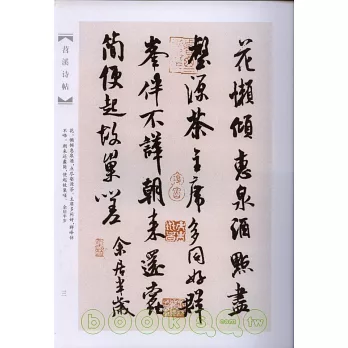 花懶傾惠泉酒點盡
壑源茶主席多同好群
峯伴不譁朝来還蠹
簡便起故巢嗟
余居半歲
苕溪诗帖
花。懒倾惠泉酒，点尽壑源茶。主席多同好，群峰伴
不哗。朝来还蠹简，便起故巢嗟。余居半岁
三